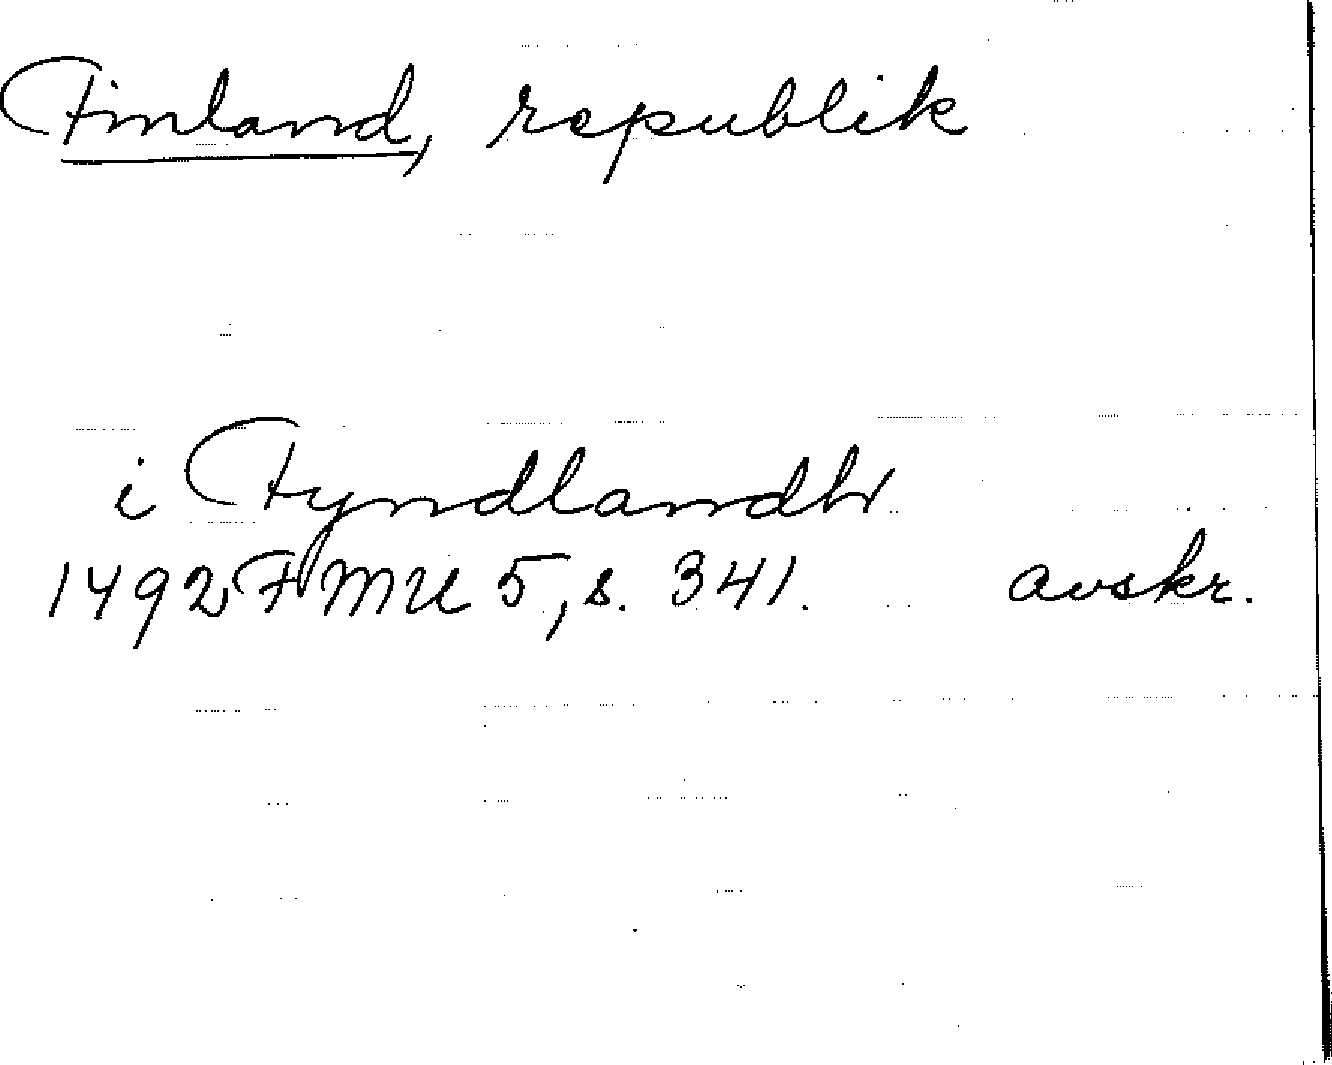 Finland, republik
i Fyndlandh
1492 FMU 5, s. 341. avskr.